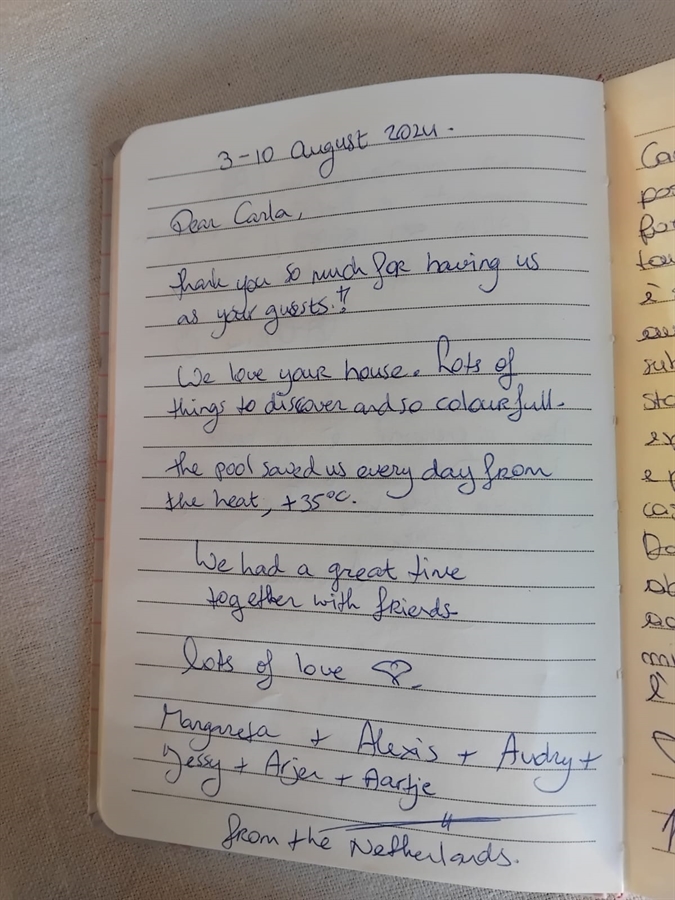 3-10 August 2024.
Dear Carla,
thank you so much for having us
as your guests.!!
We love your house. Lots of
things to discover and so colourfull.
the pool saved us every day from
the heat, +35°C.
We had a great time
together with friends
lots of love
Margareta + Alexis + Audry +
Jessy + Arjen + Aartje
from the Netherlands.
Ca
pos
for
tou
è
sub
sta
e p
Do
mi